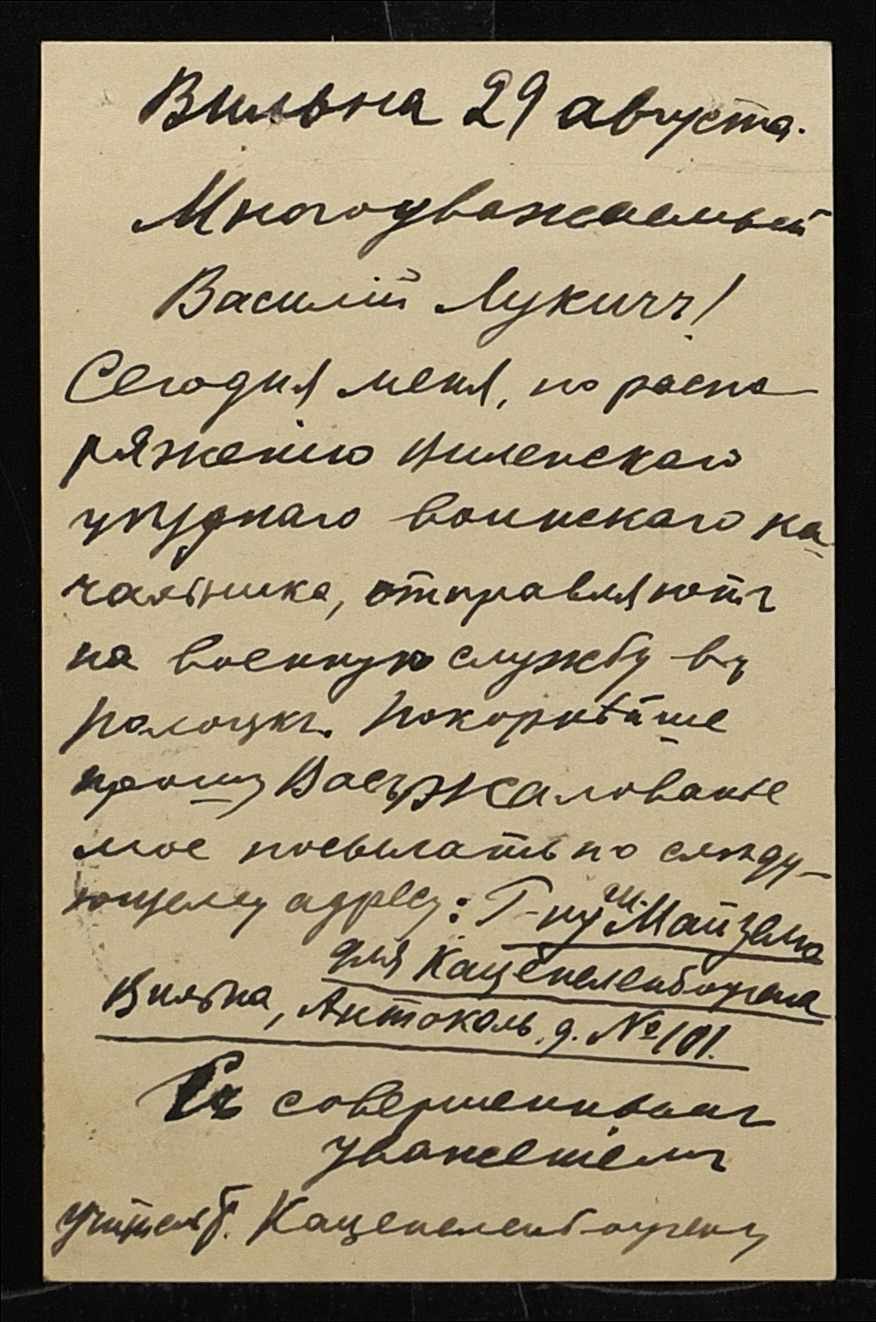 Вильна 29 августа.
Многоуважаемый
Василій Лукичъ!
Сегодня меня, по распо-
ряженію Виленскаго
уѣзднаго воинскаго на-
чальника, отправляютъ
на военную службу въ
Полоцкъ. Покорнѣйше
прошу Васъ жалованье
мое посылать по слѣду-
ющему адресу: Г-ну Ш. Майзелю
для Каценеленбогена
Вильна, Антоколь, д. № 101.
Съ совершеннымъ
уваженіемъ
учитель Каценеленбогенъ